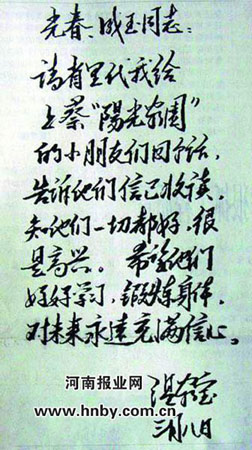 光春、成玉同志：
请省里代我给
上蔡“陽光家園”
的小朋友们回个话，
告诉他们信已收读，
知他们一切都好，很
是高兴。希望他们
好好学习，锻炼身体，
对未来永远充满信心。
温家宝
三月八日
河南报业网
www.hnby.com.cn